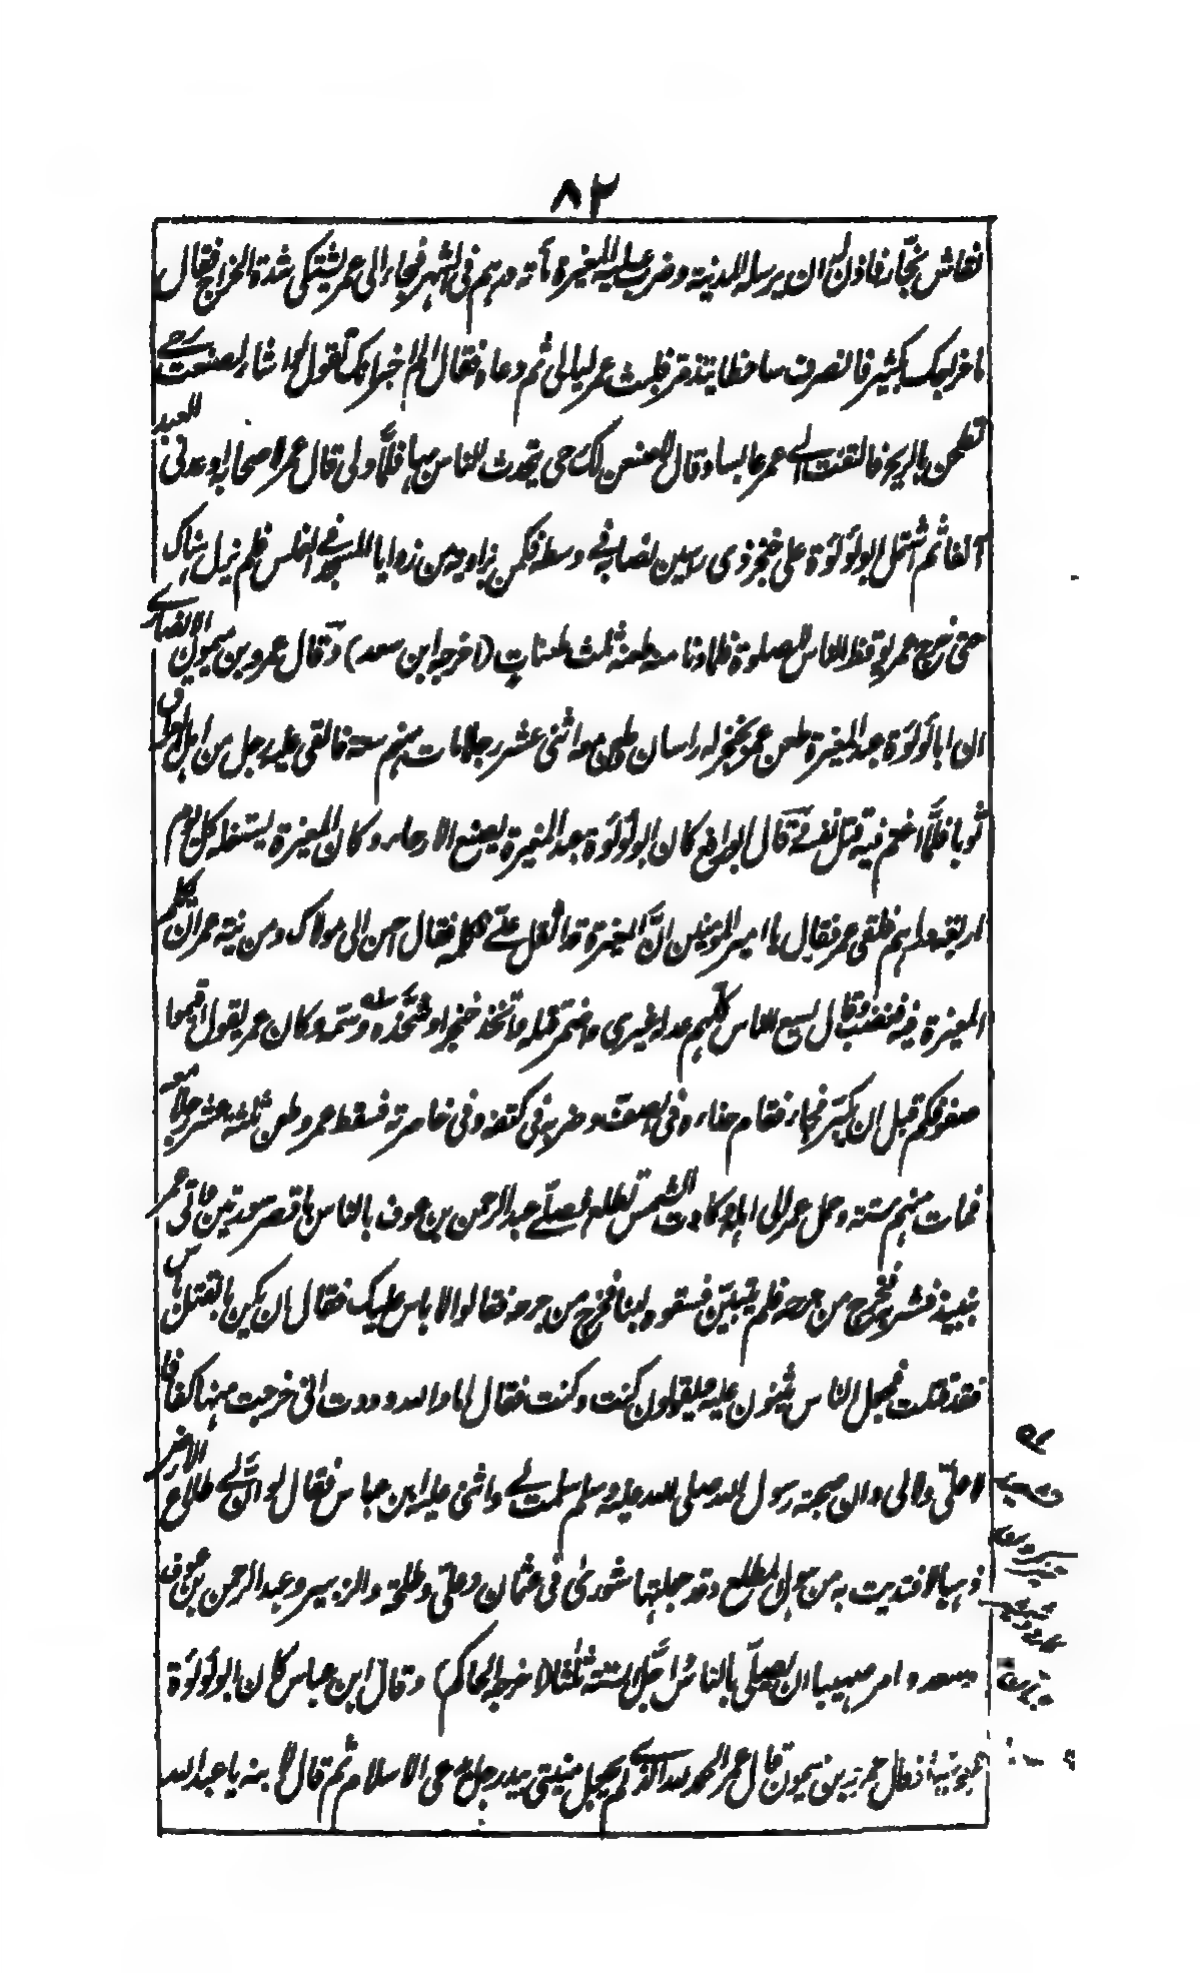 ٨٢
نقاش نجار فاذن له ان يرسله المدينة وضرب عليه المغيرة مأته درهم فى الشهر فجاء الى عمر يشتكى شدة الخراج فقال
ما خراجك بكثير فانصرف ساخطا يتذمر فلبث عمر ليالى ثم دعاه فقال الم اخبر انك تقول لو اشاء لصنعت رحى
تطحن بالريح فالتفت الى عمر عابسا وقال لاصنعن لك رحى يتحدث الناس بها فلما ولى قال عمر لاصحابه اوعدنى العبد
آنفا ثم اشتمل ابو لؤلؤة على خنجر ذى راسين نصابه فى وسطه فكمن بزاوية من زوايا المسجد فى الغلس فلم يزل هناك
حتى خرج عمر يوقظ الناس للصلوة فلما دنا منه طعنه ثلث طعنات (اخرجه ابن سعد) وقال عمرو بن ميمون الانصارى
ان ابا لؤلؤة عبد المغيرة طعن عمر بخنجر له راسان وطعن معه اثنى عشر رجلا مات منهم ستة فالقى عليه رجل من اهل العراق
ثوبا فلما اغتم فيه قتل نفسه وقال ابو رافع كان ابو لؤلؤة عبد المغيرة يصنع الارحاء وكان المغيرة يستغله كل يوم
اربعة دراهم فلقى عمر فقال يا امير المؤمنين ان المغيرة قد اثقل على فكلمه فقال احسن الى مولاك ومن نية عمر ان يكلم
المغيرة فيه فغضب وقال يسع الناس كلهم عدله غيرى واضمر قتله واتخذ خنجرا وشحذه وسمه وكان عمر يقول اقيموا
صفوفكم قبل ان يكبر فجاء فقام حذاءه فى الصف وضربه فى كتفه وفى خاصرته فسقط عمر وطعن ثلثة عشر رجلا معه
فمات منهم ستة وحمل عمر الى اهله وكادت الشمس تطلع فصلى عبد الرحمن بن عوف بالناس باقصر سورتين فاتى عمر
بنبيذ فشربه فخرج من جرحه فلم يتبين فسقوه لبنا فخرج من جرحه فقالوا لا باس عليك فقال ان يكن بالقتل باس
فقد قتلت فجعل الناس يثنون عليه ويقولون كنت وكنت فقال اما والله وددت انى خرجت منها كفافا
لا على ولا لى وان صحبة رسول الله صلى الله عليه وسلم سلمت لى واثنى عليه ابن عباس فقال لو ان لى طلاع الارض
ذهبا لافتديت به من هول المطلع وقد جعلتها شورى فى عثمان وعلى وطلحة والزبير وعبد الرحمن بن عوف
وسعد وامر صهيبا ان يصلى بالناس واجل الستة ثلثا (اخرجه الحاكم) وقال ابن عباس كان ابو لؤلؤة
مجوسيا فقال عمرو بن ميمون قال عمر الحمد لله الذى لم يجعل منيتى بيد رجل يدعى الاسلام ثم قال لابنه يا عبد الله